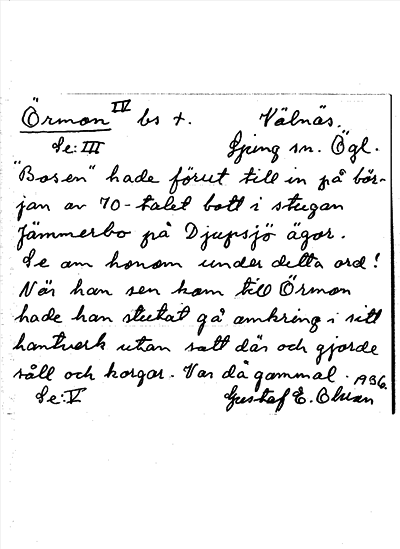 Örmon IV bs t. Välnäs.
Se: III Ljung sn. Ögl.
"Bosen" hade förut till in på bör-
jan av 70-talet bott i stugan
Jämmerbo på Djupsjö ägor.
Se om honom under detta ord!
När han sen kom till Örmon
hade han slutat gå omkring i sitt
hantverk utan satt där och gjorde
såll och korgar. Var då gammal. 1936.
Se: V Gustaf E. Olsson